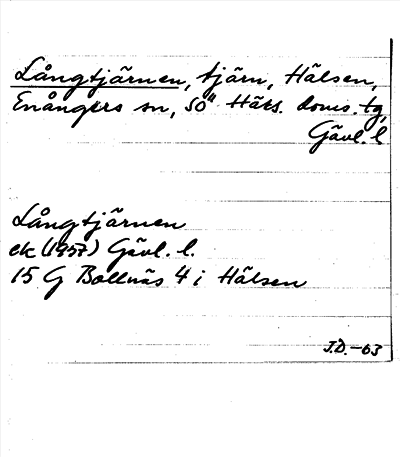 Långtjärnen, tjärn, Hälsen,
Enångers sn, SÖ Häls. doms. tg,
Gävl. l
Långtjärnen
ek (1957) Gävl. l.
15 G Bollnäs 4 i Hälsen
J.D.-63